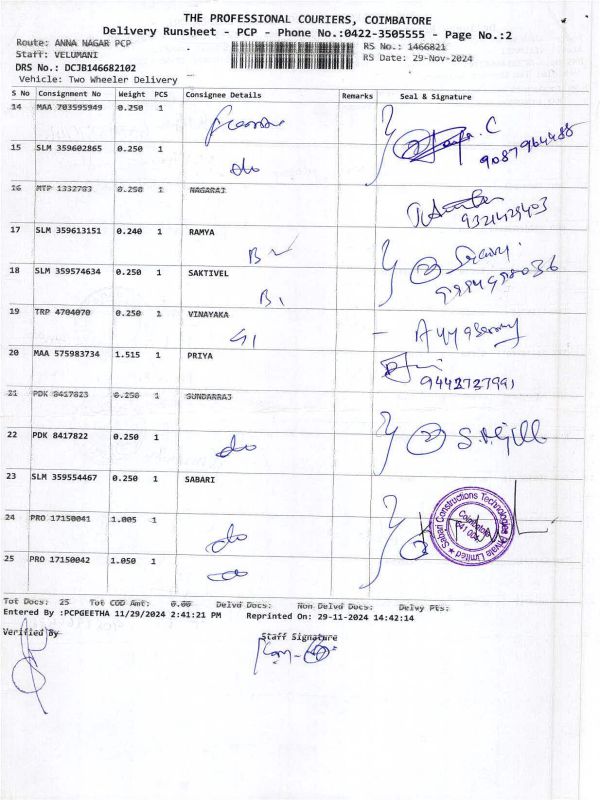 THE PROFESSIONAL COURIERS, COIMBATORE
Delivery Runsheet - PCP - Phone No.:0422-3505555 - Page No.:2
Route: ANNA NAGAR PCP
RS No.: 1466821
Staff: VELUMANI
RS Date: 29-Nov-2024
DRS No.: DCJB146682102
Vehicle: Two Wheeler Delivery
S No Consignment No Weight PCS Consignee Details Remarks Seal & Signature
14 MAA 703595949 0.250 1
15 SLM 359602865 0.250 1
do
9087964488
16 MTP 1332783 0.250 1 NAGARAJ
9321429403
17 SLM 359613151 0.240 1 RAMYA
B
18 SLM 359574634 0.250 1 SAKTIVEL
B
19 TRP 4704070 0.250 1 VINAYAKA
Ayyasamy
20 MAA 575983734 1.515 1 PRIYA
9442727991
21 PDK 8417823 0.250 1 SUNDARRAJ
22 PDK 8417822 0.250 1
do
23 SLM 359554467 0.250 1 SABARI
24 PRO 17150041 1.005 1
do
25 PRO 17150042 1.050 1
do
Sabari Constructions Technologies Private Limited
Coimbatore
Tot Docs: 25 Tot COD Amt: 0.00 Delvd Docs: Non Delvd Docs: Delvy Pts:
Entered By :PCPGEETHA 11/29/2024 2:41:21 PM Reprinted On: 29-11-2024 14:42:14
Verified By
Staff Signature